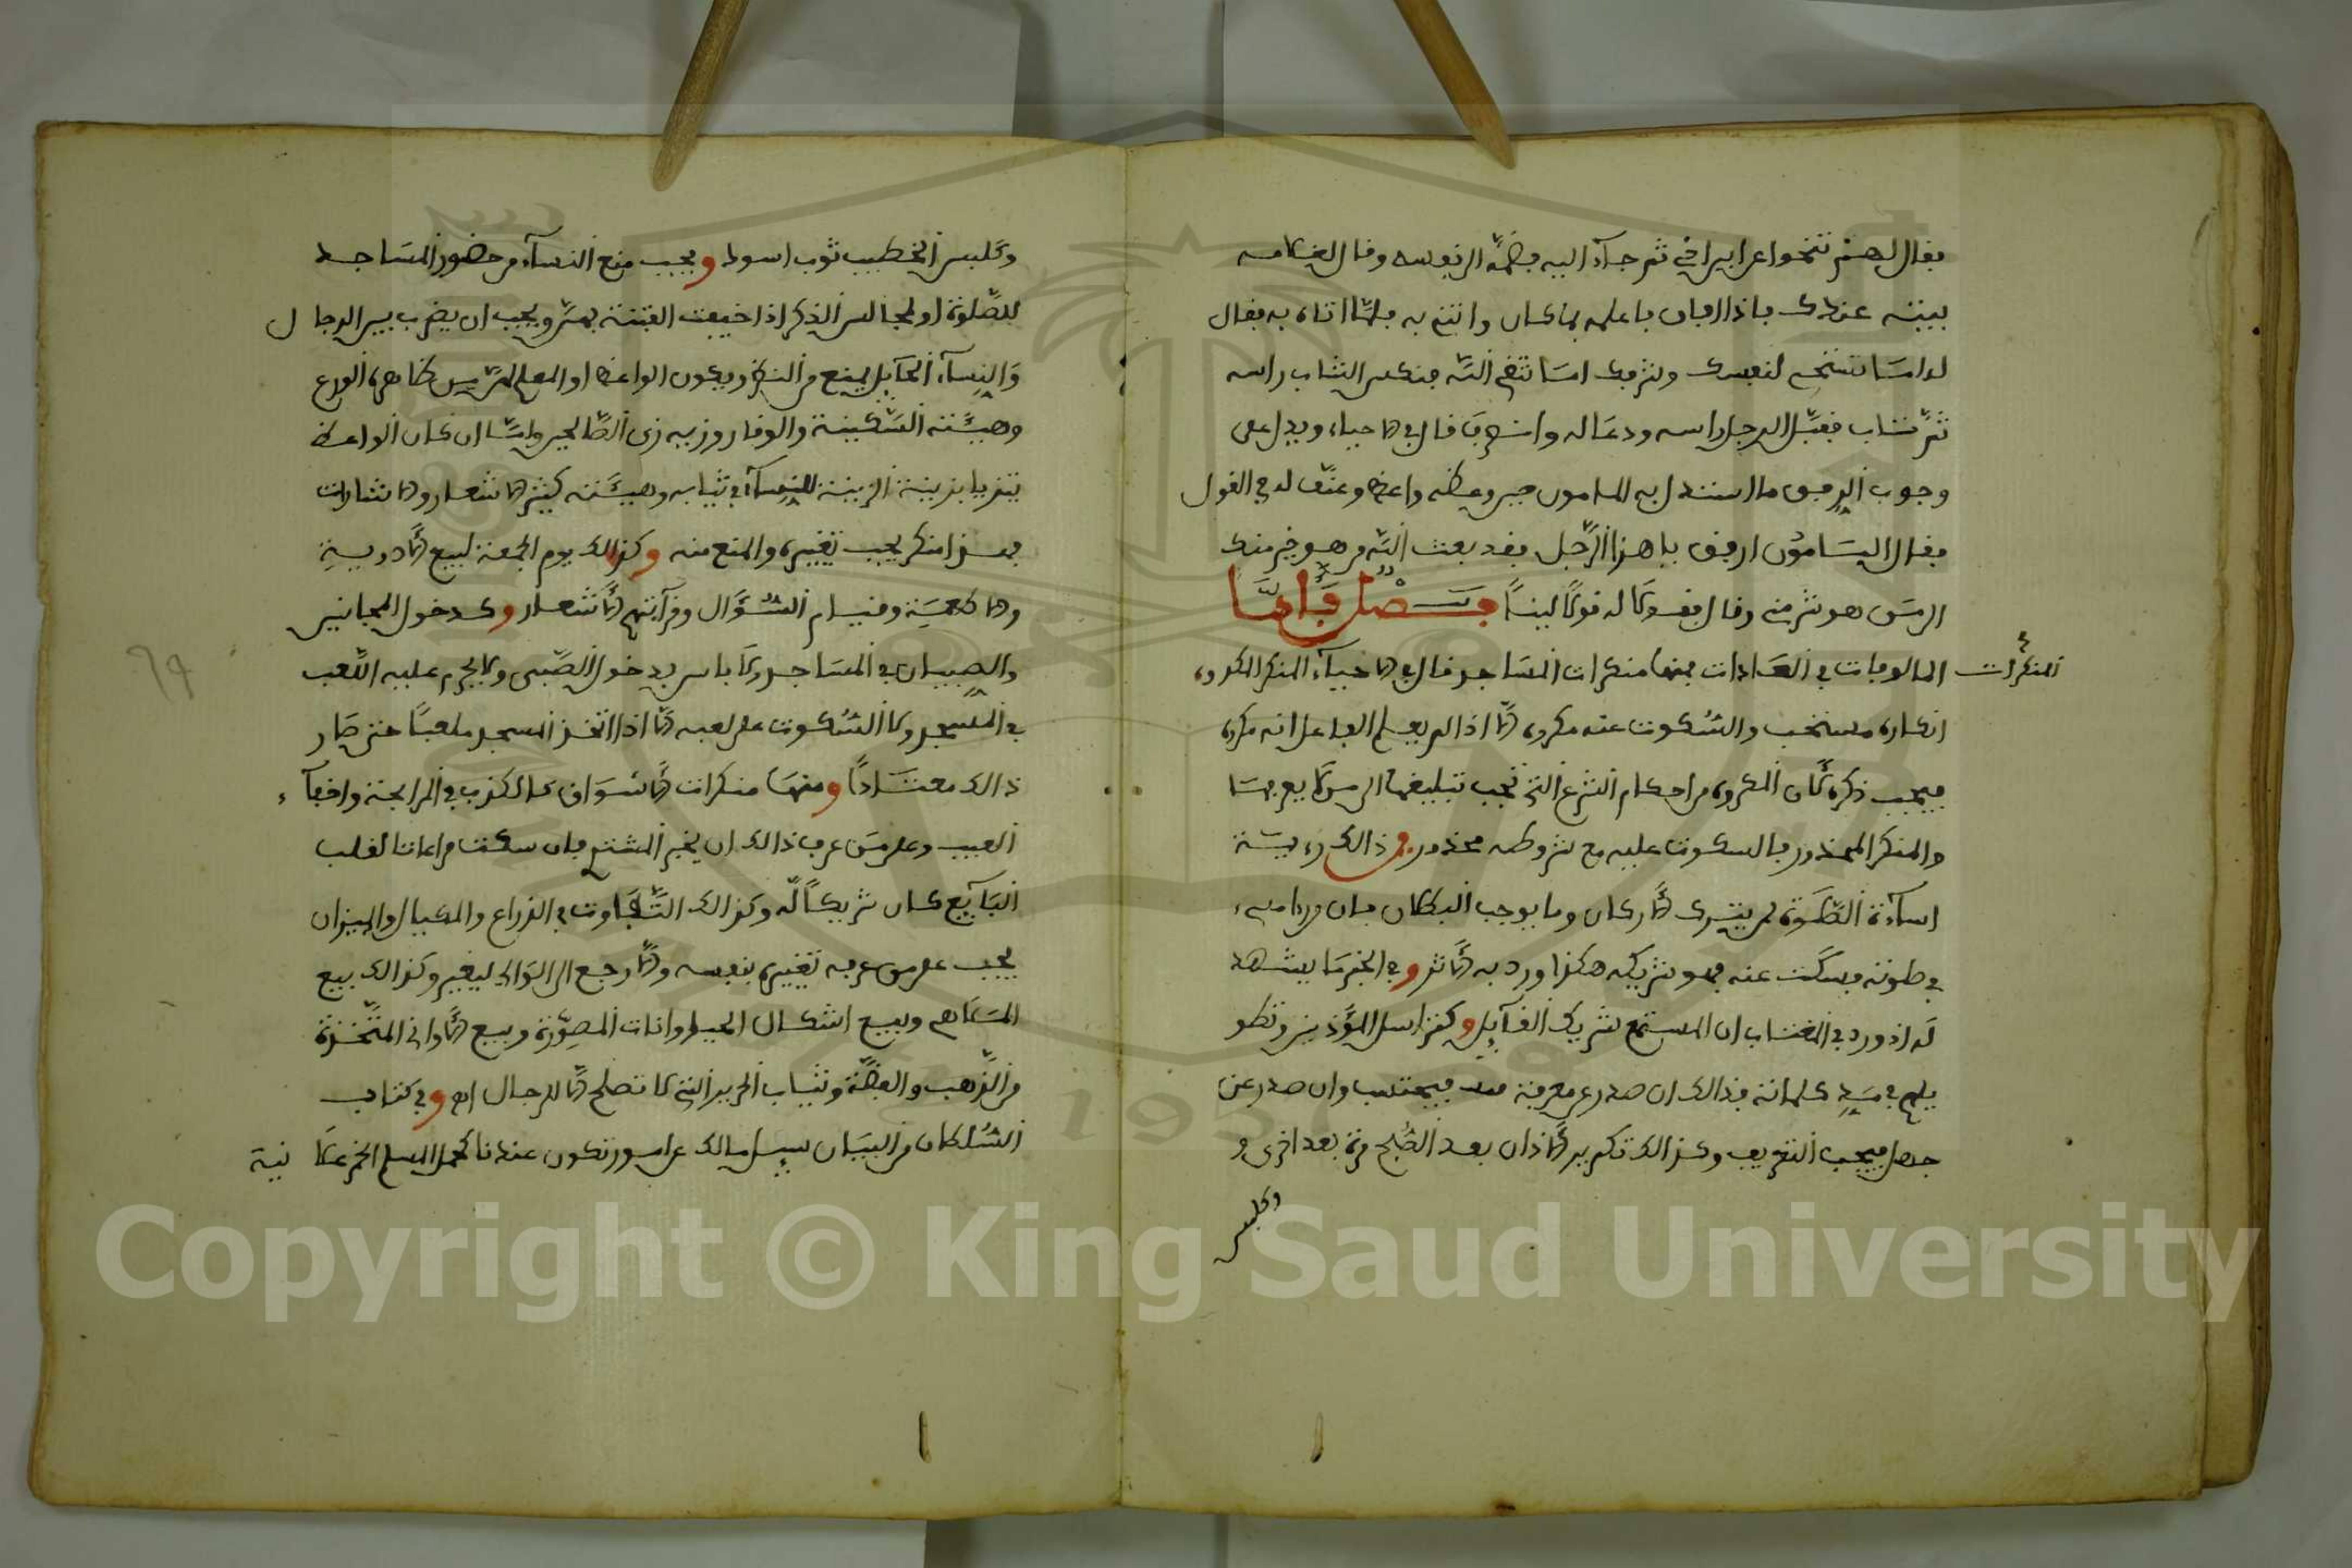 فقال لهم تنحوا عن ابن اخي ثم جاء اليه فضمه الى نفسه وقال لغلامه
بيته عندك فاذا افاق فاعلمه بما كان واتني به فلما اتاه به فقال
له اما تستحي لنفسك ولشرفك اما تتقي الله فنكس الشاب راسه
ثم تاب فقبل الرجل راسه ودعا له وانصرف قال في الاحياء ويدل على
وجوب الرفق ما استدل به المامون حين وعظه واعظ وعنف له في القول
فقال المامون ارفق يا هذا الرجل فقد بعث الله من هو خير منك
الى من هو شر مني وقال فقولا له قولا لينا فصل واما
المنكرات
المالوفات في العادات فمنها منكرات المساجد قال في الاحياء المنكر المكروه
انكاره مستحب والسكوت عنه مكروه الا اذا لم يعلم الفاعل انه مكروه
فيجب ذكره لان المكروه من احكام الشرع التي يجب تبليغها الى من لا يعرفها
والمنكر المحذور فالسكوت عليه مع شروطه محذور فمن ذالك رؤية
اساءة الصلوة لمن يترك الاركان وما يوجب البطلان فان من را مسيء
في صلوته فسكت عنه فهو شريكه هكذا ورد به الاثر وفي الخبر ما يشهد
له اذ ورد في المغتاب ان المستمع شريك القائل وكتراسل المؤذنين وتطو
يلهم في مد كلماته فذالك ان صدر عن معرفة فيحتسب وان صدر عن
جهل فيجب التعريف وكذالك تكرير الاذان بعد الصبح مرة بعد اخرى و
وكلبس
وكلبس الخطيب ثوب اسود ويجب منع النساء من حضور المساجد
للصلوة او لمجالس الذكر اذا خيفت الفتنة بهن ويجب ان يضرب بين الرجال
والنساء الحائل ليمنع من النظر ويكون الواعظ او المعلم المدرس ظاهره الورع
وهيئته السكينة والوقار وزيه زي الصالحين واما ان كان الواعظ
يتزيا بزينة الزينة للنساء في ثيابه وهيئته كثير الاشعار والاشارات
فهذا منكر يجب تغييره والمنع منه وكذالك يوم الجمعة لبيع الادوية
والاطعمة وقيام السؤال وقرآئتهم الاشعار وكدخول المجانين
والصبيان في المساجد ولا باس بدخول الصبي ولا يحرم عليه اللعب
في المسجد ولا السكوت على لعبه الا اذا اتخذ المسجد ملعبا حتى صار
ذالك معتادا ومنها منكرات الاسواق كالكذب في المرابحة واخفاء
العيب وعلى من عرف ذالك ان يخبر المشتري فان سكت مراعاتا لقلب
البائع كان شريكا له وكذالك التفاوت في الذراع والمكيال والميزان
يجب على من عرفه تغييره بنفسه والا رجع الى الوالي ليغير وكذالك بيع
الملاهي وبيع اشكال الحيوانات المصورة وبيع الاواني المتخذة
من الذهب والفضة وثياب الحرير التي لا تصلح الا للرجال اه وفي كتاب
السلطان من البيان سيل مالك عن امور تكون عندنا كحمل المسلم الخمر علانية
٦٩